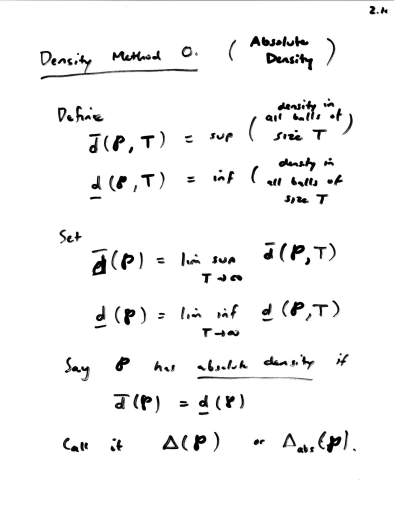 2.14
Density Method 0. ( Absolute Density )
Define
d̅(P, T) = sup ( density in all balls of size T )
d̲(P, T) = inf ( density in all balls of size T
Set
d̅(P) = lim sup T→∞ d̅(P, T)
d̲(P) = lim inf T→∞ d̲(P, T)
Say P has absolute density if
d̅(P) = d̲(P)
Call it Δ(P) or Δabs(P).